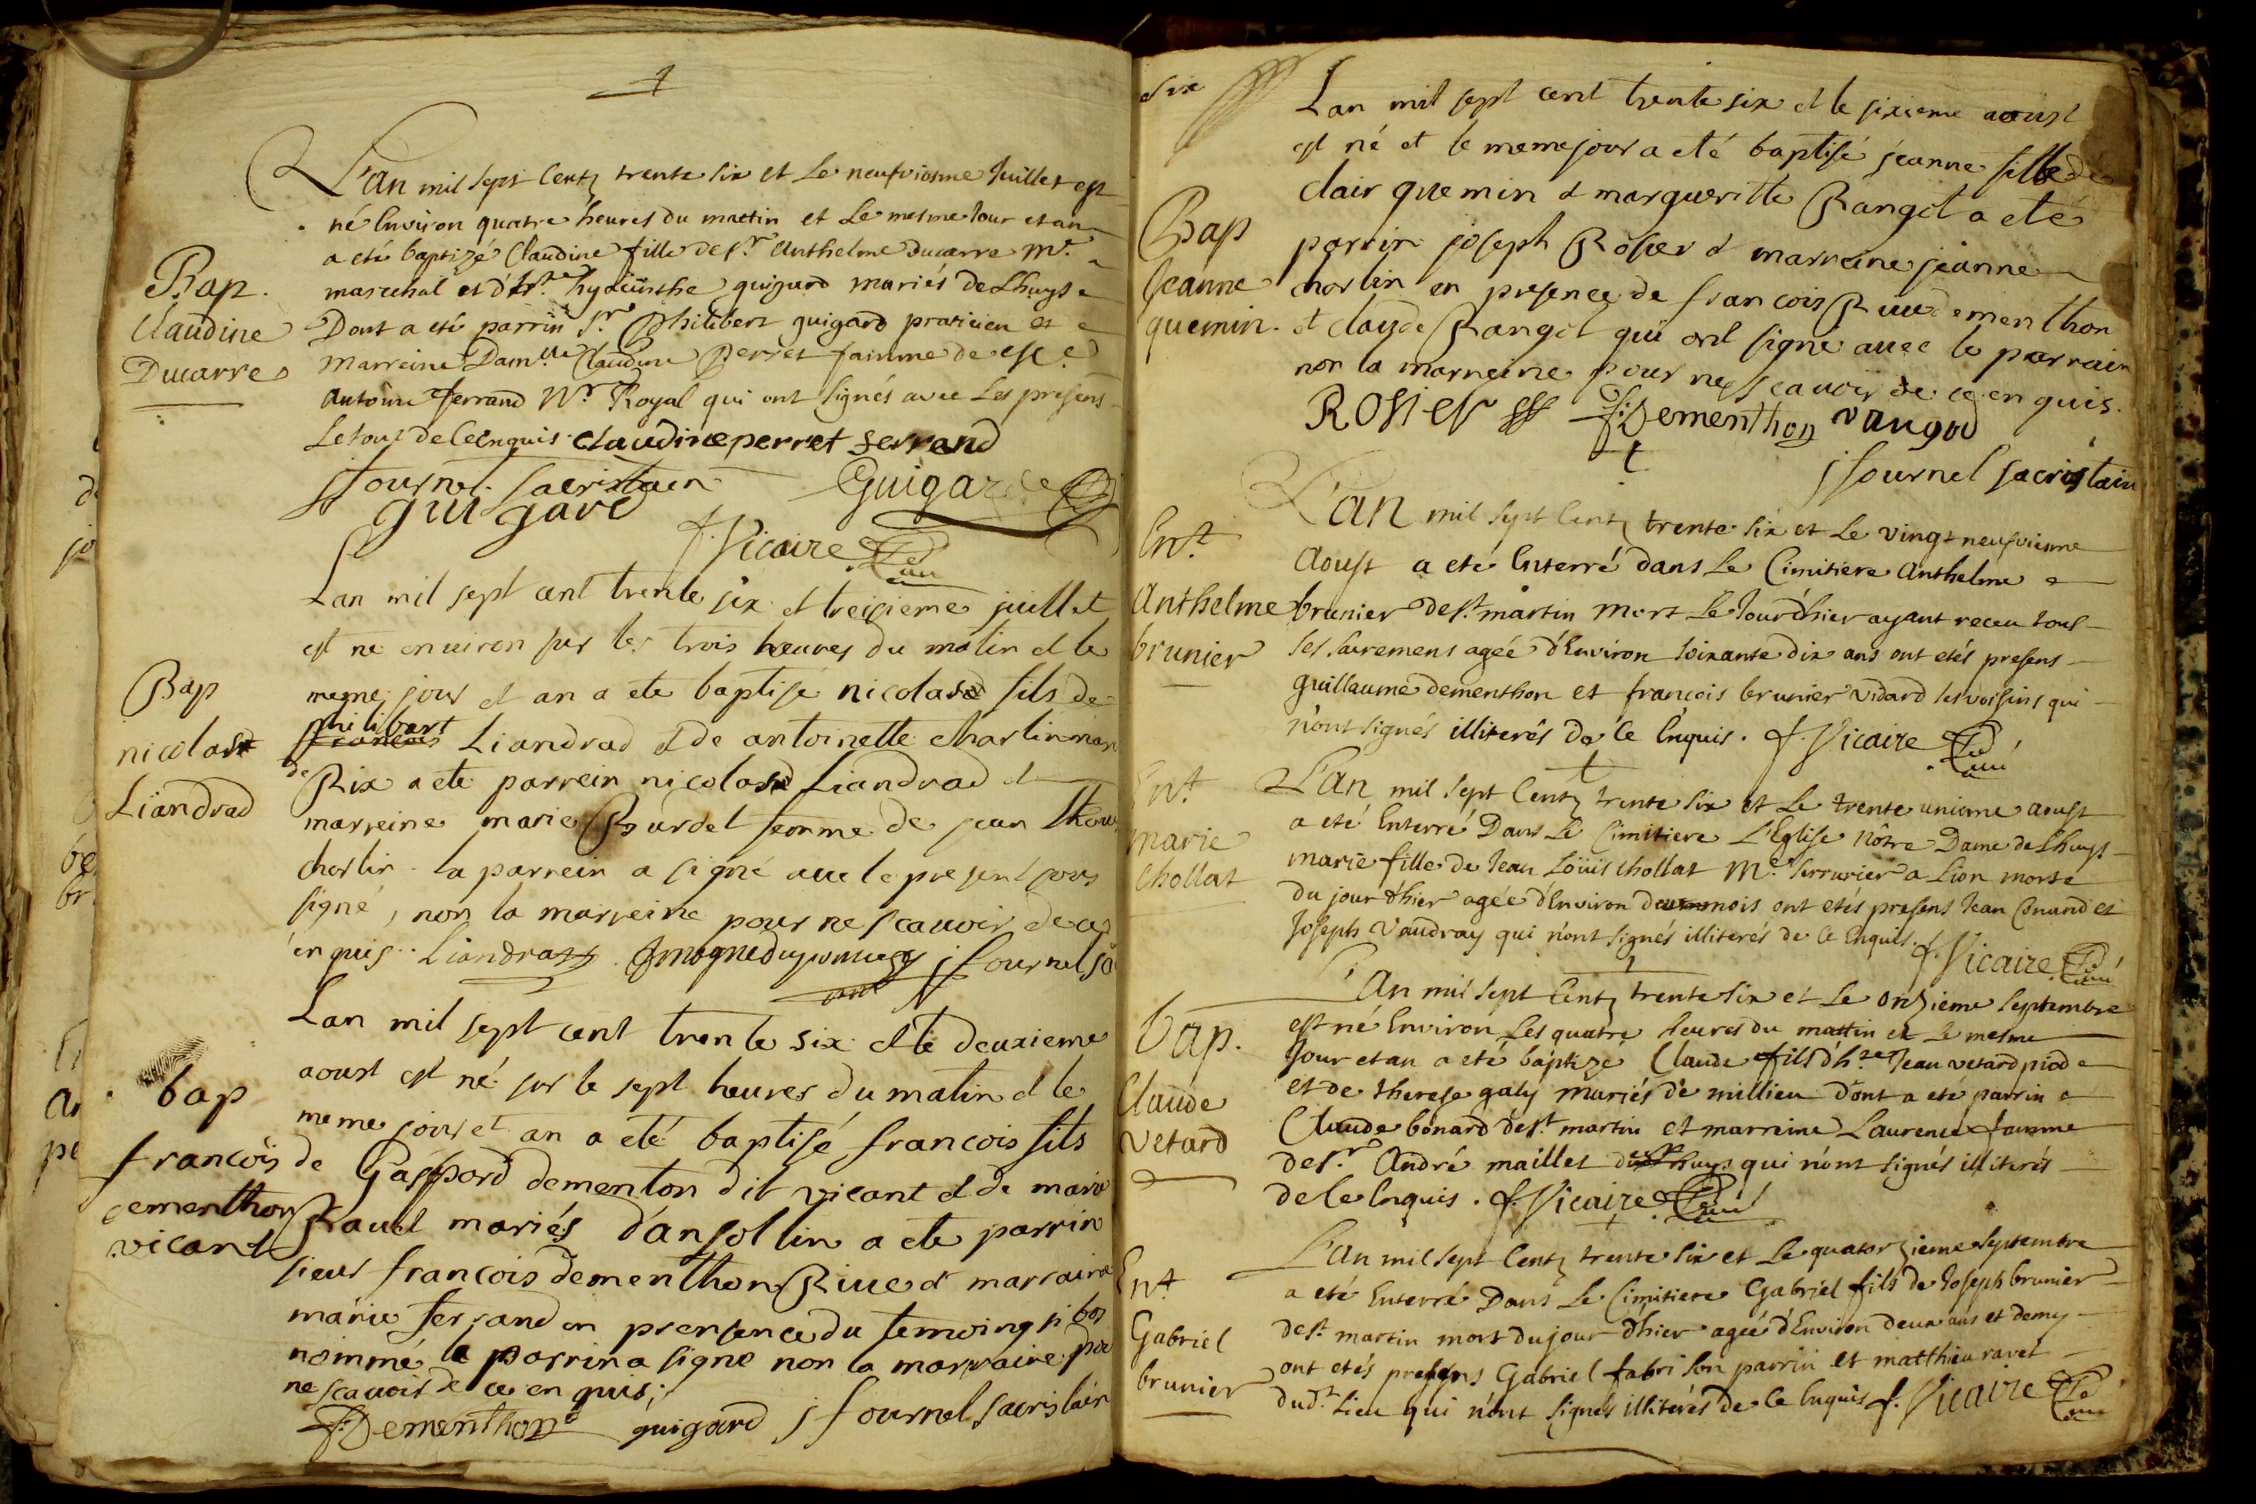 L'an mil sept Centz trente six et Le neufviesme Juillet est
né Environ quatre heures du mattin et Le mesme Jour et an
a eté baptizé Claudine fille de Sr. Anthelme Ducarre Me.
marechal et d'hyacinthe guigard mariés de Lhuys
Bap.
Claudine
Ducarre
Dont a eté parrin Sr. Philibert guigard praticien et
Marreine Damlle Claudine Perret famme de
Antoine ferrand Nre. Royal qui ont signés avec Les presens
Le tout de Ce enquis. claudine perret serrand
J fournel sacristain Guigard
guigard
f. Vicaire Curé
Lan mil sept cent trente six et treizieme juillet
est né enuiron sur les trois heures du matin et le
meme jour et an a ete baptisé nicolas fils de
philibert
francois Liandrad et de antoinette charlin
de Rix a ete parrein nicolas Liandrad et
marreine marie Burdet femme de jean
charlin la parrein a signé auec le present sous
signé, non la marreine pour ne scauoir de ce
enquis. Liandraz j fournel
Bap
nicolas
Liandrad
Lan mil sept cent trente six et le deuxieme
aoust est né sur le sept heures du matin et le
meme jour et an a eté baptisé francois fils
de Gaspard dementon dit vicant et de marie
Rauet mariés d'ansollin a ete parrin
sieur francois dementhon Riue et marraine
marie ferrand en presence du temoing
nommé le parrin a signe non la marraine pour
ne scauoir de ce enquis;
f. Dementhon guigard j fournel sacristain
bap
francois
dementhon
vicant
six
Lan mil sept cent trente six et le sixieme aoust
est né et le meme jour a eté baptisé jeanne fille de
clair quemin et margueritte Rangot a eté
parrin joseph Rosier et marreine jeanne
charlin en presence de francois Riue dementhon
et claude Rangot qui ont signé auec le parrain
non la marreine pour ne scauoir de ce enquis.
Rosier f. Dementhon vangod
j fournel sacristain
Bap
Jeanne
quemin.
L'an mil sept Centz trente six et Le vingt neufvieme
Aoust a eté Enterré dans Le Cimitiere Anthelme
brunier de St. martin mort Le Jour d'hier ayant receu tous
ses sacremens agée d'Environ soixante dix ans ont etés presens
guillaume dementhon et francois brunier vidard ses voisins qui
n'ont signés illiterés de Ce Enquis. f. Vicaire Curé
Ent.
Anthelme
brunier
L'an mil sept Centz trente six et Le trente unieme aoust
a eté Enterré Dans Le Cimitiere L'Eglise Nôtre Dame de Lhuys
marie fille de Jean Loüis chollat Me. serrurier a Lion morte
du jour d'hier agée d'Environ deux mois ont etés presens Jean Conand et
Joseph Vaudray qui n'ont signés illiterés de Ce Enquis. f. Vicaire Curé
Ent.
marie
chollat
L'An mil sept Centz trente six et Le onzieme septembre
est né Environ Les quatre heures du mattin et Le mesme
Jour et an a eté baptizé Claude fils d'h. Jean vetard piod
et de therese galy mariés de millieu Dont a eté parrin
Claude bonard de St. martin et marreine Laurence famme
de Sr. André maillet de Lhuys qui n'ont signés illiterés
de Ce Enquis. f. Vicaire Curé
bap.
Claude
vetard
L'An mil sept Centz trente six et Le quatorzieme septembre
a eté Enterré Dans Le Cimitiere Gabriel fils de Joseph brunier
de St. martin mort du jour d'hier agée d'Environ deux ans et demy
ont etés presens Gabriel fabri son parrin et matthieu ravet
dudt. Lieu qui n'ont signés illiterés de Ce Enquis f. Vicaire Curé
Ent.
Gabriel
brunier